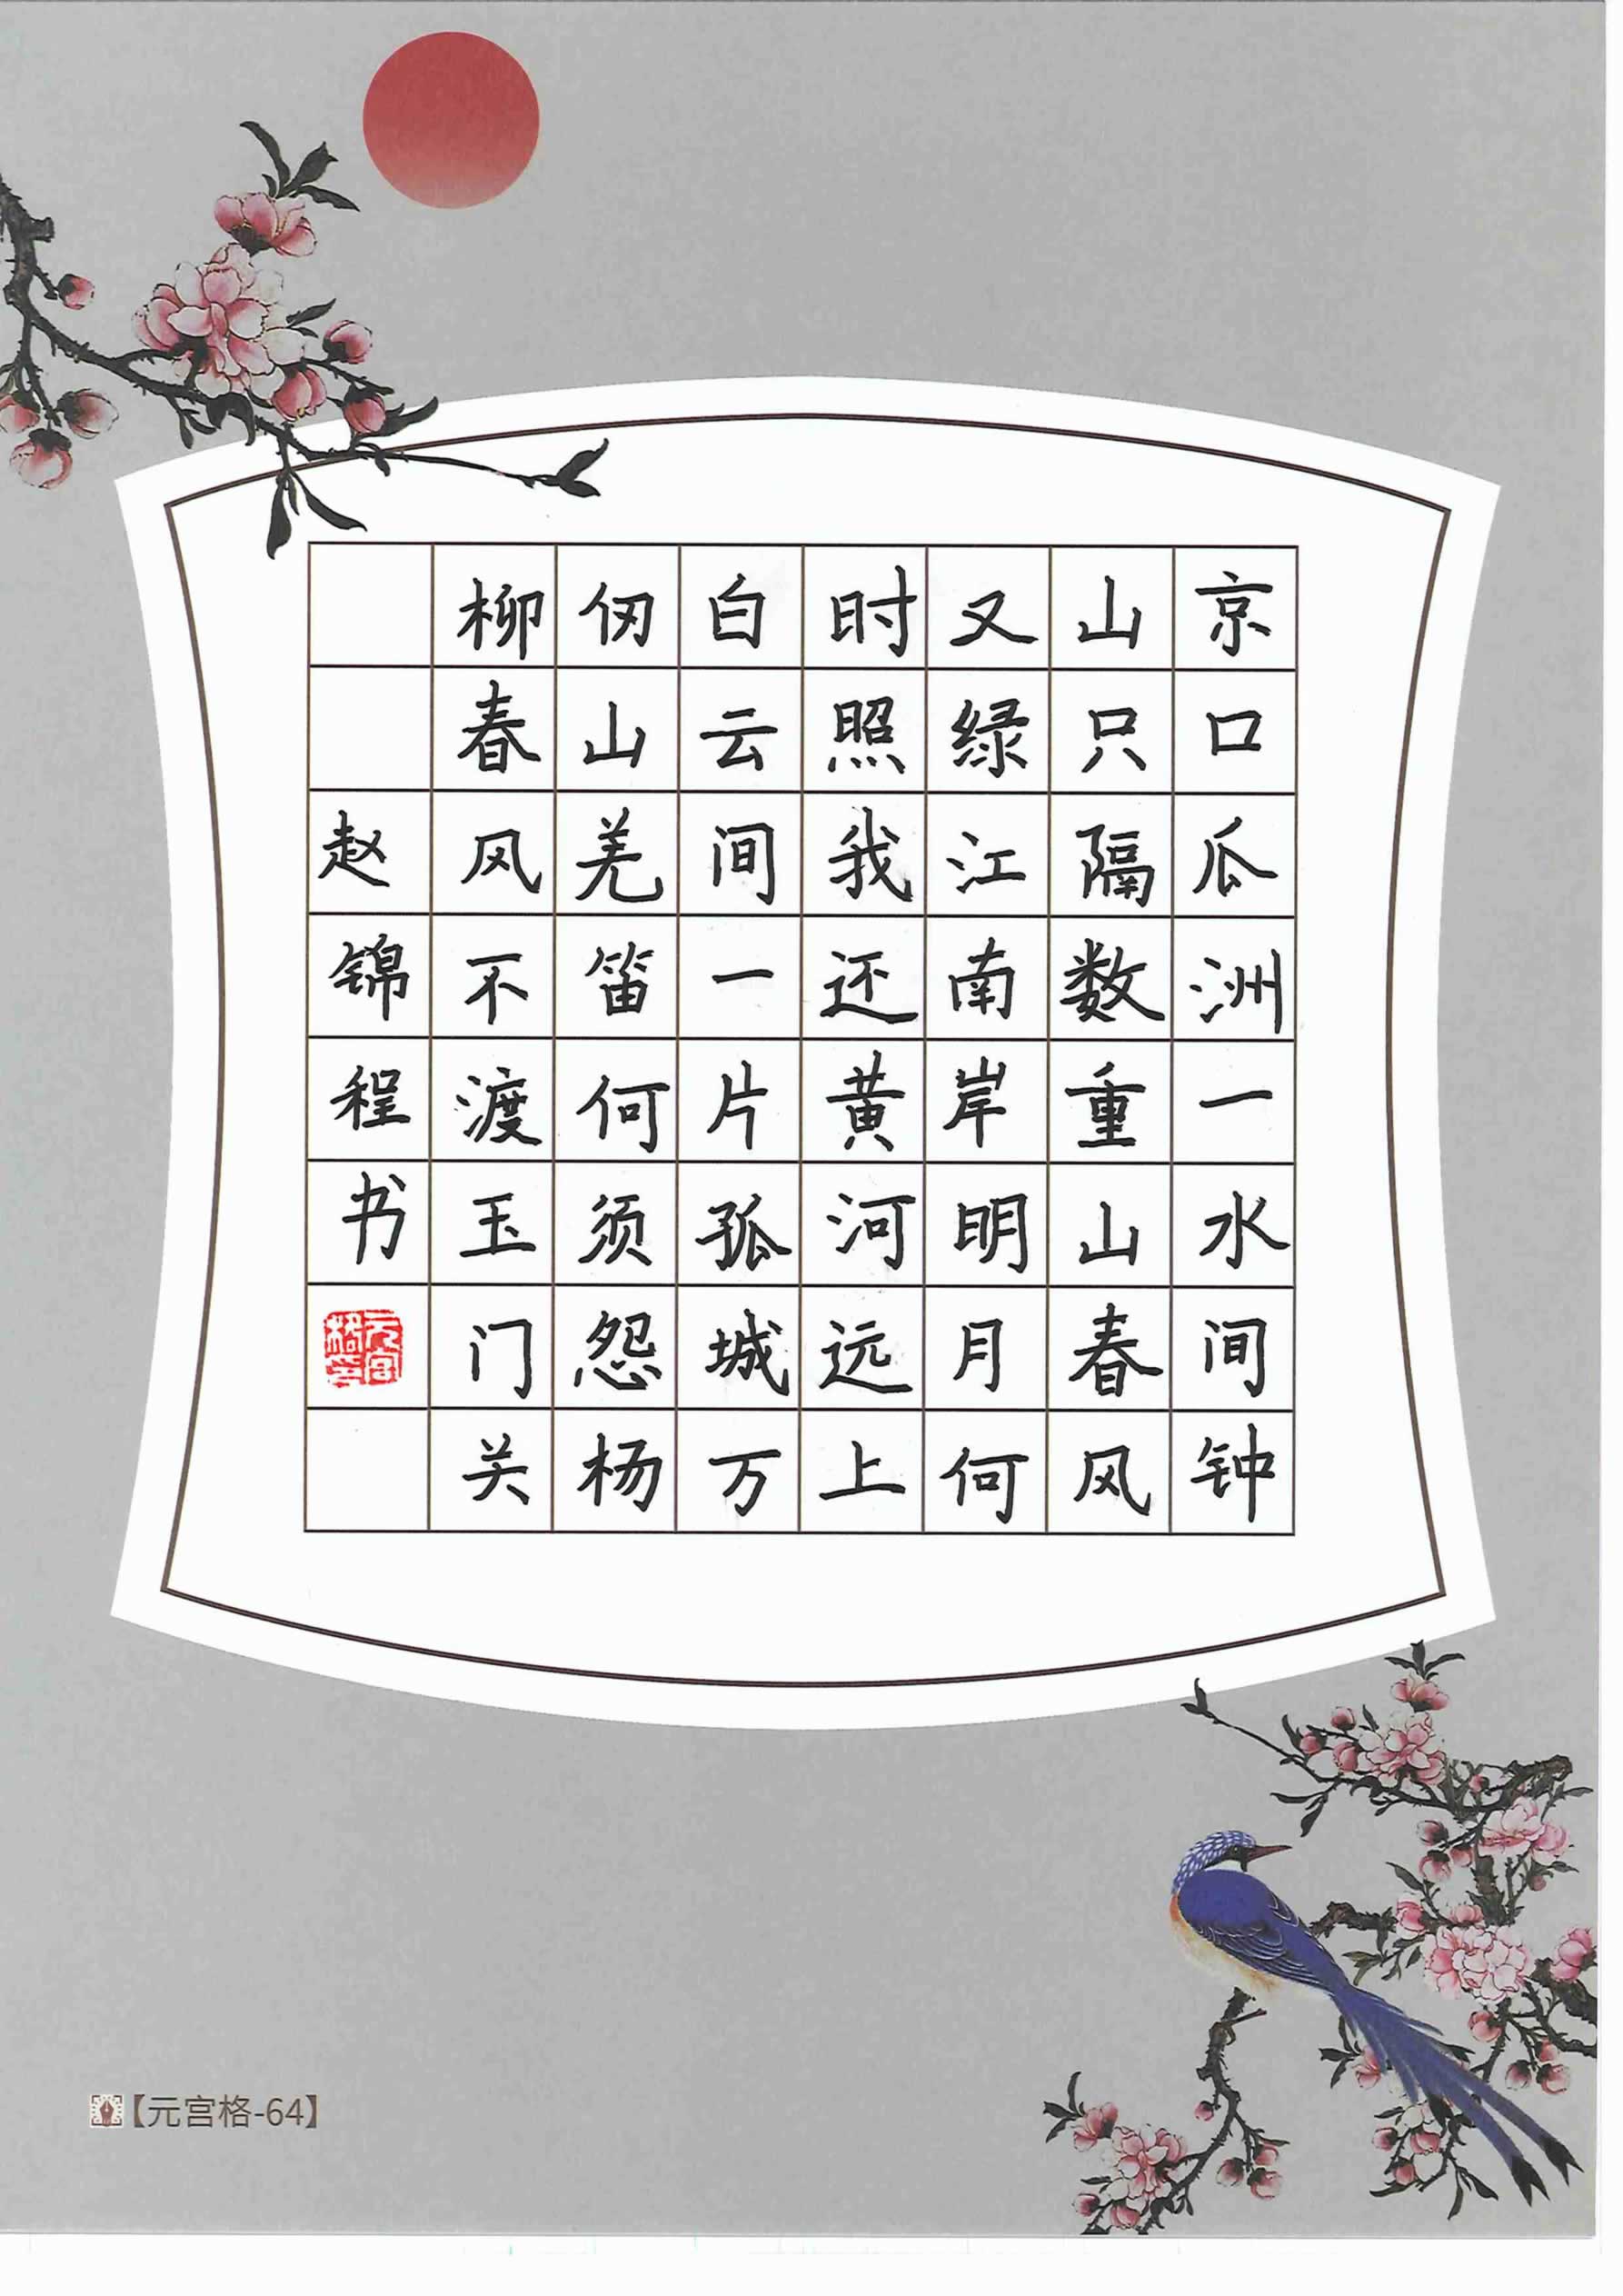 京口瓜洲一水间钟
山只隔数重山春风
又绿江南岸明月何
时照我还黄河远上
白云间一片孤城万
仞山羌笛何须怨杨
柳春风不渡玉门关
赵锦程书
元宫格印
【元宫格-64】